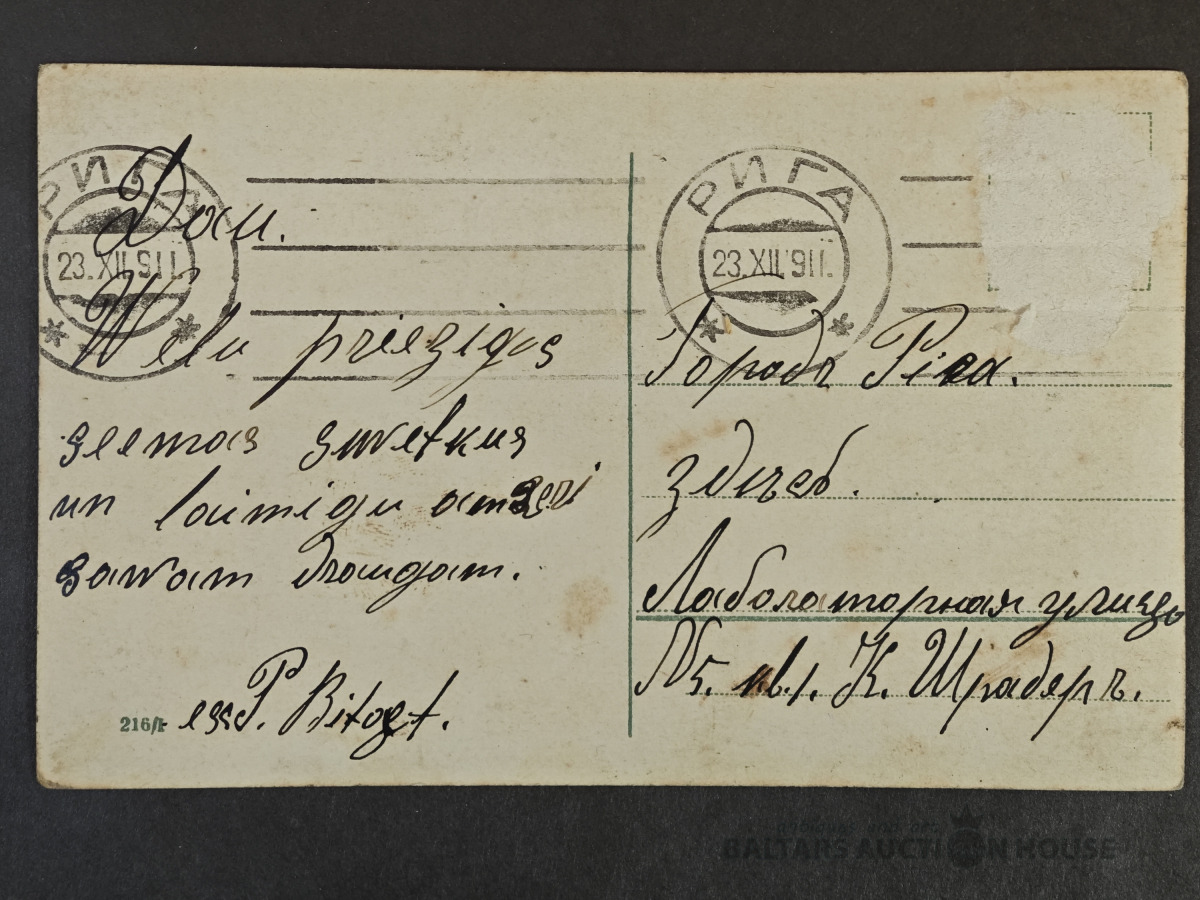 РИГА
23.XII.911.
Welu priezigas
seemas swetkus
un laimigu
sawam draugam.
216/I
РИГА
23.XII.911.
Городъ Рига.
здѣсь.
Лаболаторная улица
К. Шрадеръ.
BALTARS AUCTION HOUSE